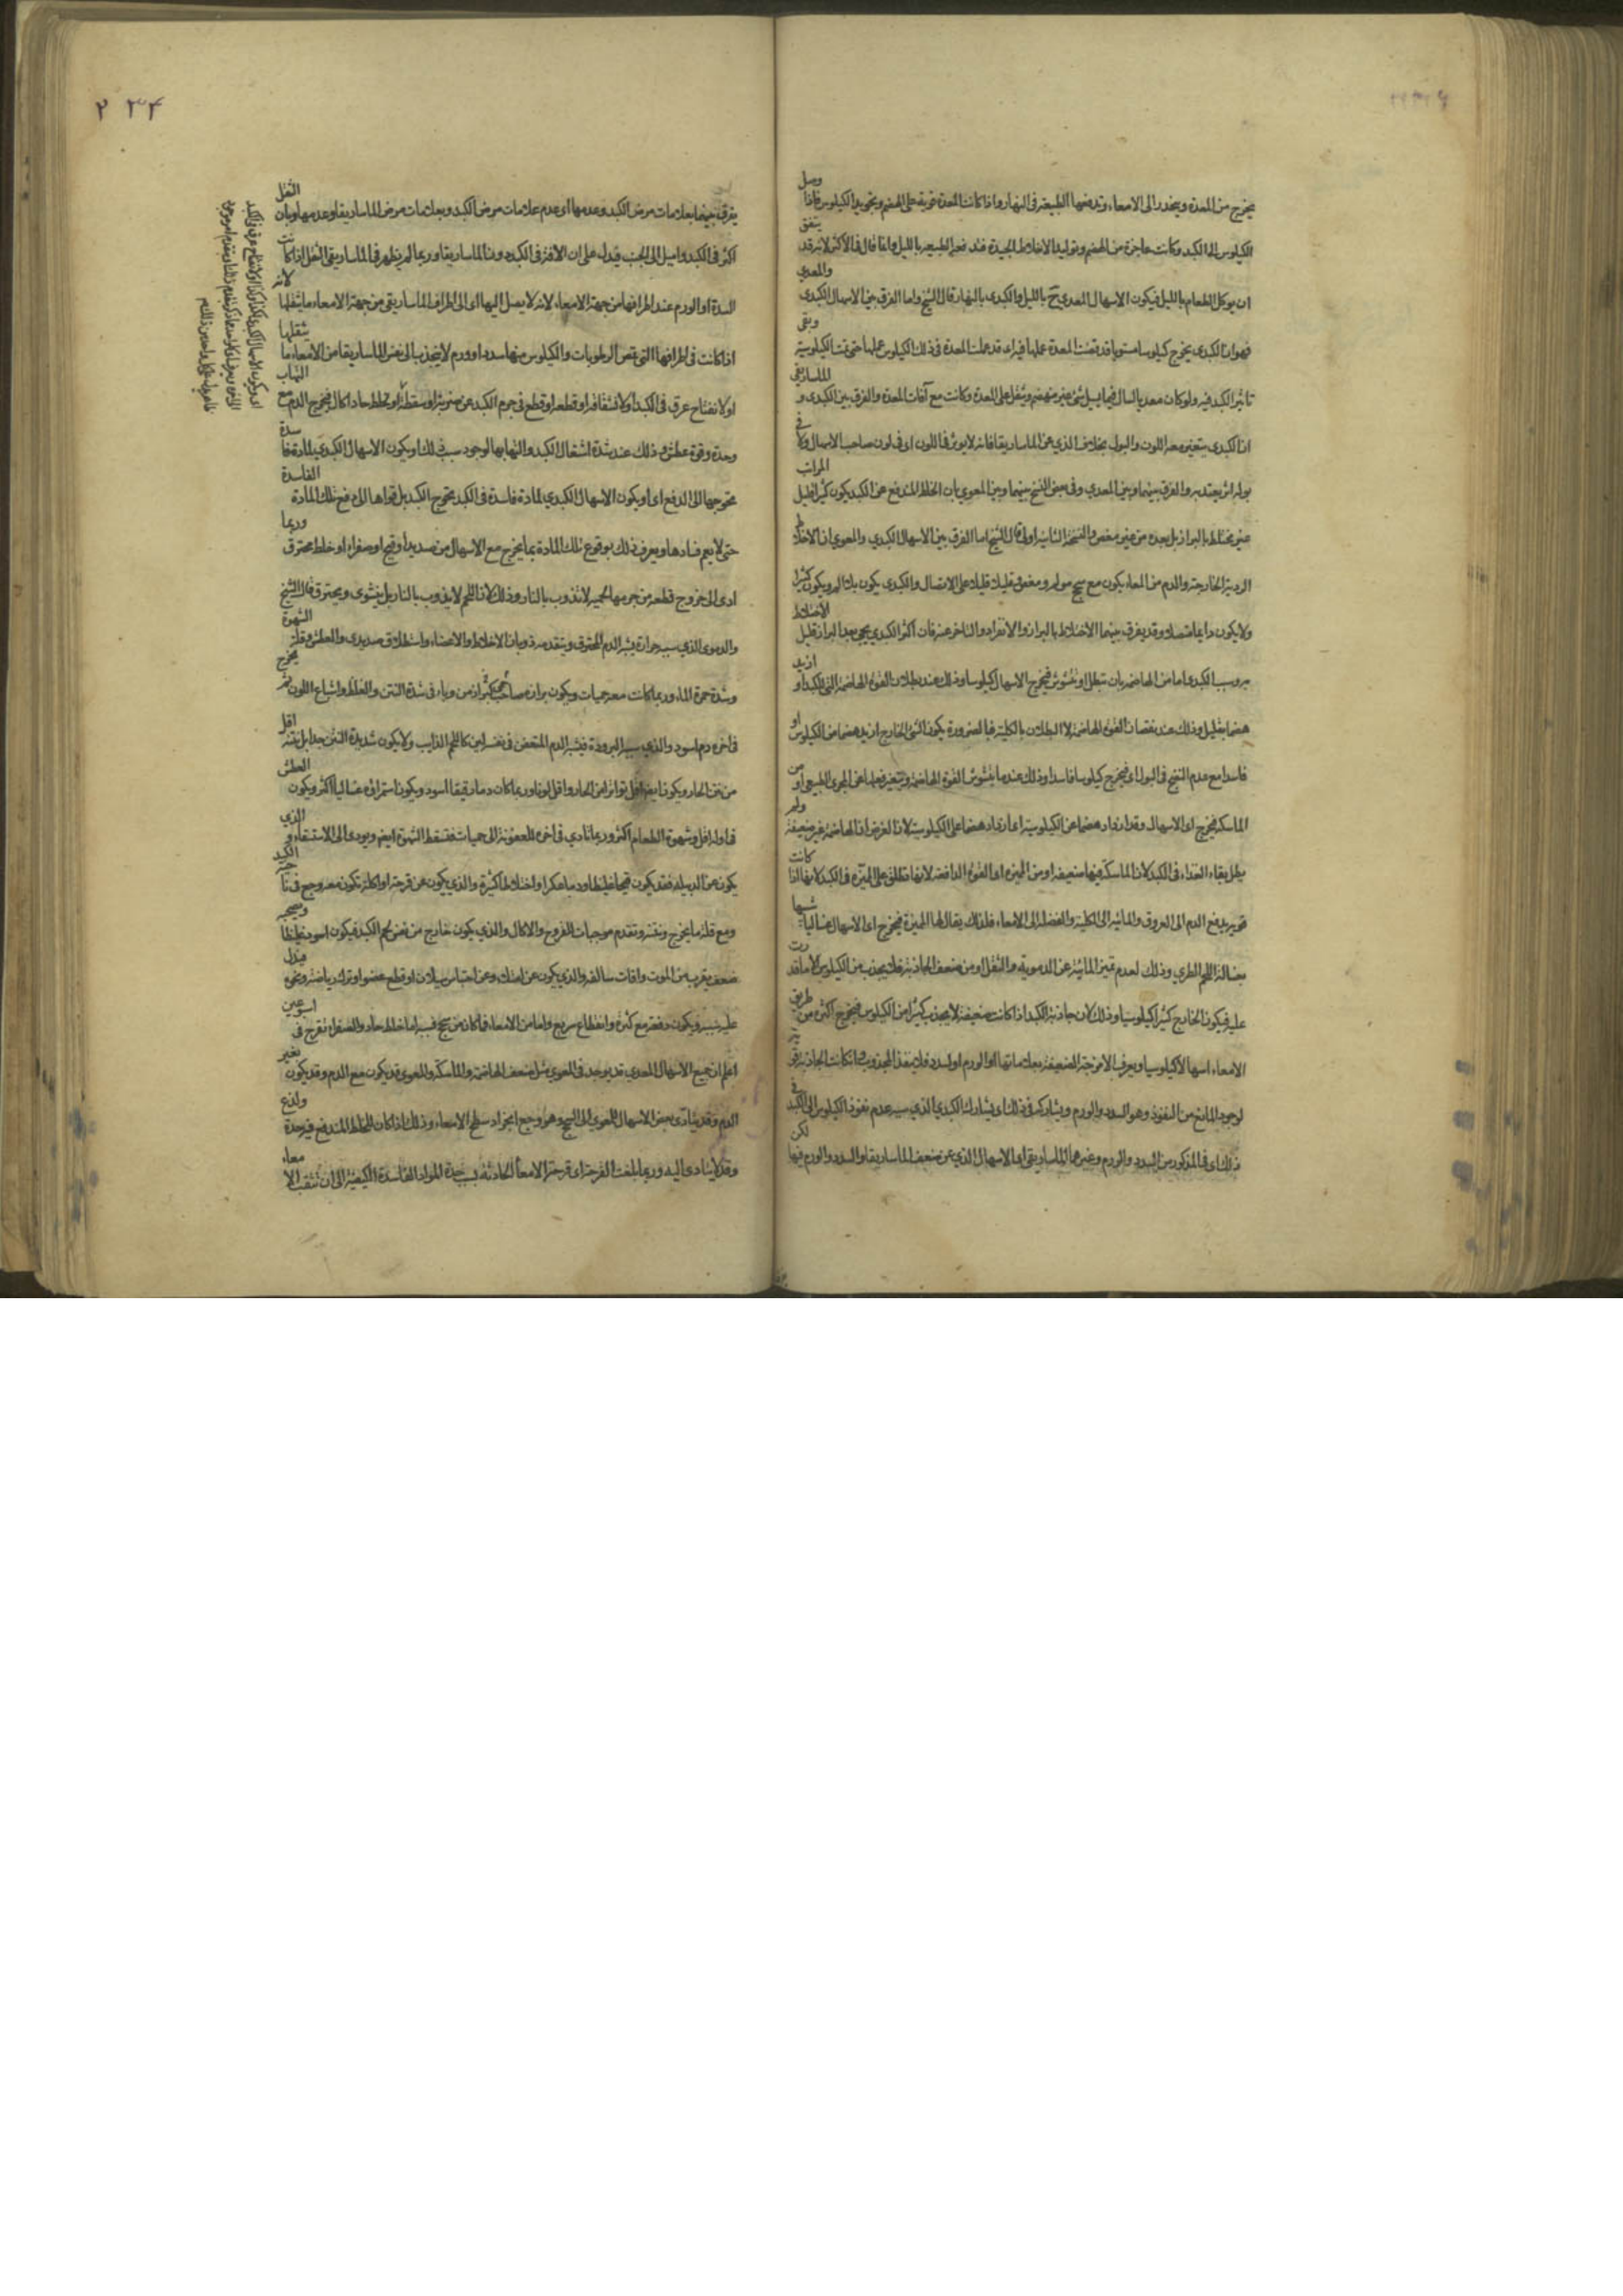 يخرج من المعدة وينحدر الى الامعاء وتدفعها الطبيعة فى النهار واذا كانت المعدة قوية على الهضم وتجويد الكيلوس فاذا وصل
الكيلوس الى الكبد وكانت عاجزة من الهضم وتوليد الاخلاط الجيدة فتدفعه الطبيعة بالليل وانما قال فى الاكثر لانه قد يتفق
ان يوكل الطعام بالليل فيكون الاسهال المعدي ح بالليل والكبدى بالنهار قال الشيخ واما الفرق بين الاسهال الكبدى والمعدي
فهو ان الكبدى يخرج كيلوسا مستويا قد قضت المعدة عملها فيه اى قد عملت المعدة فى ذلك الكيلوس عملها حتى تمت الكيلوسية وبقى
تاثير الكبد فيه ولو كان معديا لسال فيما يسيل شئ غير منهضم ويثقل على المعدة وكانت مع آفات المعدة والفرق بين الكبدى والماساريقى
ان الكبدى يتغير معه اللون والبول بخلاف الذي عن الماساريقا فانه لا يوثر فى اللون اى فى لون صاحب الاسهال ولا فى
بوله اثر يعتد به والفرق بينهما وبين المعدي وفى بعض النسخ بينهما وبين المعوي بان الخلط المندفع عن الكبد يكون كثير
غير مختلط بالبراز بل بعده من غير مغص والنسخة الثانية اولى قال الشيخ اما الفرق بين الاسهال الكبدي والمعوي ان الاخلاط
الردية الخارجة والدم من المعاء يكون مع سحج مولم ومغص قليلا قليلا على الاتصال والكبدى يكون بلا الم ويكون كثيرا
ولا يكون دايما متصلا وقد يفرق بينهما الاختلاط بالبراز والانفراد والتاخر عنه فان اكثر الكبدي يجى بعد البراز قليل الاختلاط
به وسبب الكبدى اما من الهاضمة بان تبطل او تشوش فيخرج الاسهال كيلوسا وذلك عند بطلان القوة الهاضمة التى للكبد او ازيد
هضما بقليل وذلك عند نقصان القوة الهاضمة لا البطلان بالكلية فبالضرورة يكون الشئ الخارج ازيد هضما من الكيلوس او
فاسدا مع عدم النضج فى البول اى فيخرج كيلوسا فاسدا وذلك عندما يشوش القوة الهاضمة ويتغير فعلها عن المجرى الطبيعى او من
الماسكة فيخرج اى الاسهال وقد ازداد هضما عن الكيلوسية اى ازداد هضما على الكيلوسية لان الغرض ان الهاضمة غير ضعيفة ولم
يطل بقاء الغذاء فى الكبد لان الماسكة فيها ضعيفة او من المميزة اى القوة الدافعة لانها تطلق على المميزة فى الكبد لانها اذا كانت
قوية يدفع الدم الى العروق والمائية الى الكلية والفضلة الى الامعاء فلذلك يقال لها المميزة فيخرج اى الاسهال غساليا شبيها
بغسالة اللحم الطري وذلك لعدم تميز المائية عن الدموية والثفل او من ضعف الجاذبة فلا يجذب من الكيلوس الا ما قدرت
عليه فيكون الخارج كثيرا كيلوسيا وذلك لان جاذبة الكبد اذا كانت ضعيفة لا يجذب كثيرا من الكيلوس فيخرج اكثره من طريق
الامعاء اسهالا كيلوسيا ويعرف الامزجة الضعيفة بعلاماتها او الورم او لسدد فلا ينفذ المجذوب وان كانت الجاذبة قوية
لوجود المانع من النفوذ وهو السدد والورم ويشاركه فى ذلك اى يشارك الكبدي الذي سببه عدم نفوذ الكيلوس الى الكبد فى
ذلك اى فى المذكور من السدد والورم وغيرهما الماساريقى اى الاسهال الذي عن ضعف الماساريقا والسدد والورم فيها لكن
٢٣٤
يفرق بينهما بعلامات مرض الكبد وعدمها اى عدم علامات مرض الكبد وبعلامات مرض الماساريقا وعدمها وبان الثقل
اكثر فى الكبد واميل الى الجنب فيدل على ان الافة فى الكبد دون الماساريقا وربما لم يظهر فى الماساريقى الثقل اذا كانت
السدة او الورم عند اطرافها من جهة الامعاء لانه لا يصل اليها اى الى اطراف الماساريقى من جهة الامعاء ما يثقلها لانه
اذا كانت فى اطرافها التى تمص الرطوبات والكيلوس منها سدد او ورم لا ينجذب الى نفس الماساريقا من الامعاء ما يثقلها
او لانفتاح عرق فى الكبد او لانشقاقه او قطعه او قطع فى جوم الكبد عن ضربة او سقطة او لخلط حاد اكال فيخرج الدم مع التهاب
وحدة وقوة عطش وذلك عند شدة اشتعال الكبد والتهابها لوجود سبب ذلك او يكون الاسهال الكبدي لمادة فاسدة
تحوجها الى الدفع اى او يكون الاسهال الكبدي لمادة فاسدة فى الكبد يحوج الكبد بل قواها الى دفع تلك المادة الفاسدة
حتى لا يعم فسادها ويعرف ذلك بوقوع تلك المادة بما يخرج مع الاسهال من صديد او قيح او صفراء او خلط محترق وربما
ادى الى خروج قطعة من جرمها لحمية لا تذوب بالنار وذلك لان اللحم لا يذوب بالنار بل ينشوى ويحترق قال الشيخ
والدموى الذي سببه حرارة يشبه الدم المحترق ويتقدمه ذوبان الاخلاط والاعضاء واستطلاق صديدى والعطش وقلة الشهوة
وشدة حمرة الماء وربما كانت معه حميات ويكون براز صاحبه كبراز من وباء فى شدة النتن والغلظ واشباع اللون ثم يخرج
فى آخره دم اسود والذي سببه البرودة فيشبه الدم المتعفن فى نفسه ليس كاللحم الذايب ولا يكون شديد النتن جدا بل نتنه اقل
من نتن الحار ويكون ايضا اقل تواترا من الحار واقل لونا وربما كان دما رقيقا اسود ويكون استمراؤه غساليا اكثر ويكون العطش
فى اوله اقل وشهوة الطعام اكثر وربما تادي فى اخره للعفونة الى حميات فتسقط الشهوة ايضا ويودى الى الاستسقاء والذي
يكون عن الدبيلة فقد يكون قيحا غليظا ودما عكرا واخلاطا كثيرة والذي يكون عن قرحة او اكلة تكون معه وجع فى ناحية الكبد
ومع قلة ما يخرج ونتنه وتقدم موجبات القروح والاكال والذي يكون خارج من نفس لحم الكبد فيكون اسود غليظا ويصحبه
ضعف يقرب من الموت وافات سالفة والذي يكون عن امتلاء وعن احتباس سيلان او قطع عضو او ترك رياضة ونحوه فيدل
عليه سببه ويكون دفعة مع كثرة وانقطاع سريع واما من الامعاء فما كان من سحج فسببه اما خلط حاد والصفراء تقرح فى اسبوعين
اعلم ان جميع الاسهال المعدي قد يوجد فى المعوي مثل ضعف الهاضمة والماسكة والمعوى قد يكون مع الدم وقد يكون بغير
الدم وقد يتادى بعض الاسهال المعوي الى السحج وهو وجع انجراد سطح الامعاء وذلك اذا كان الخلط المندفع فيه حدة ولذع
وقد لا يتادى اليه وربما بلغت القرحة اى قرحة الامعاء الحادثة بسبب حدة المواد الفاسدة الكيفية الى ان تثقب الامعاء